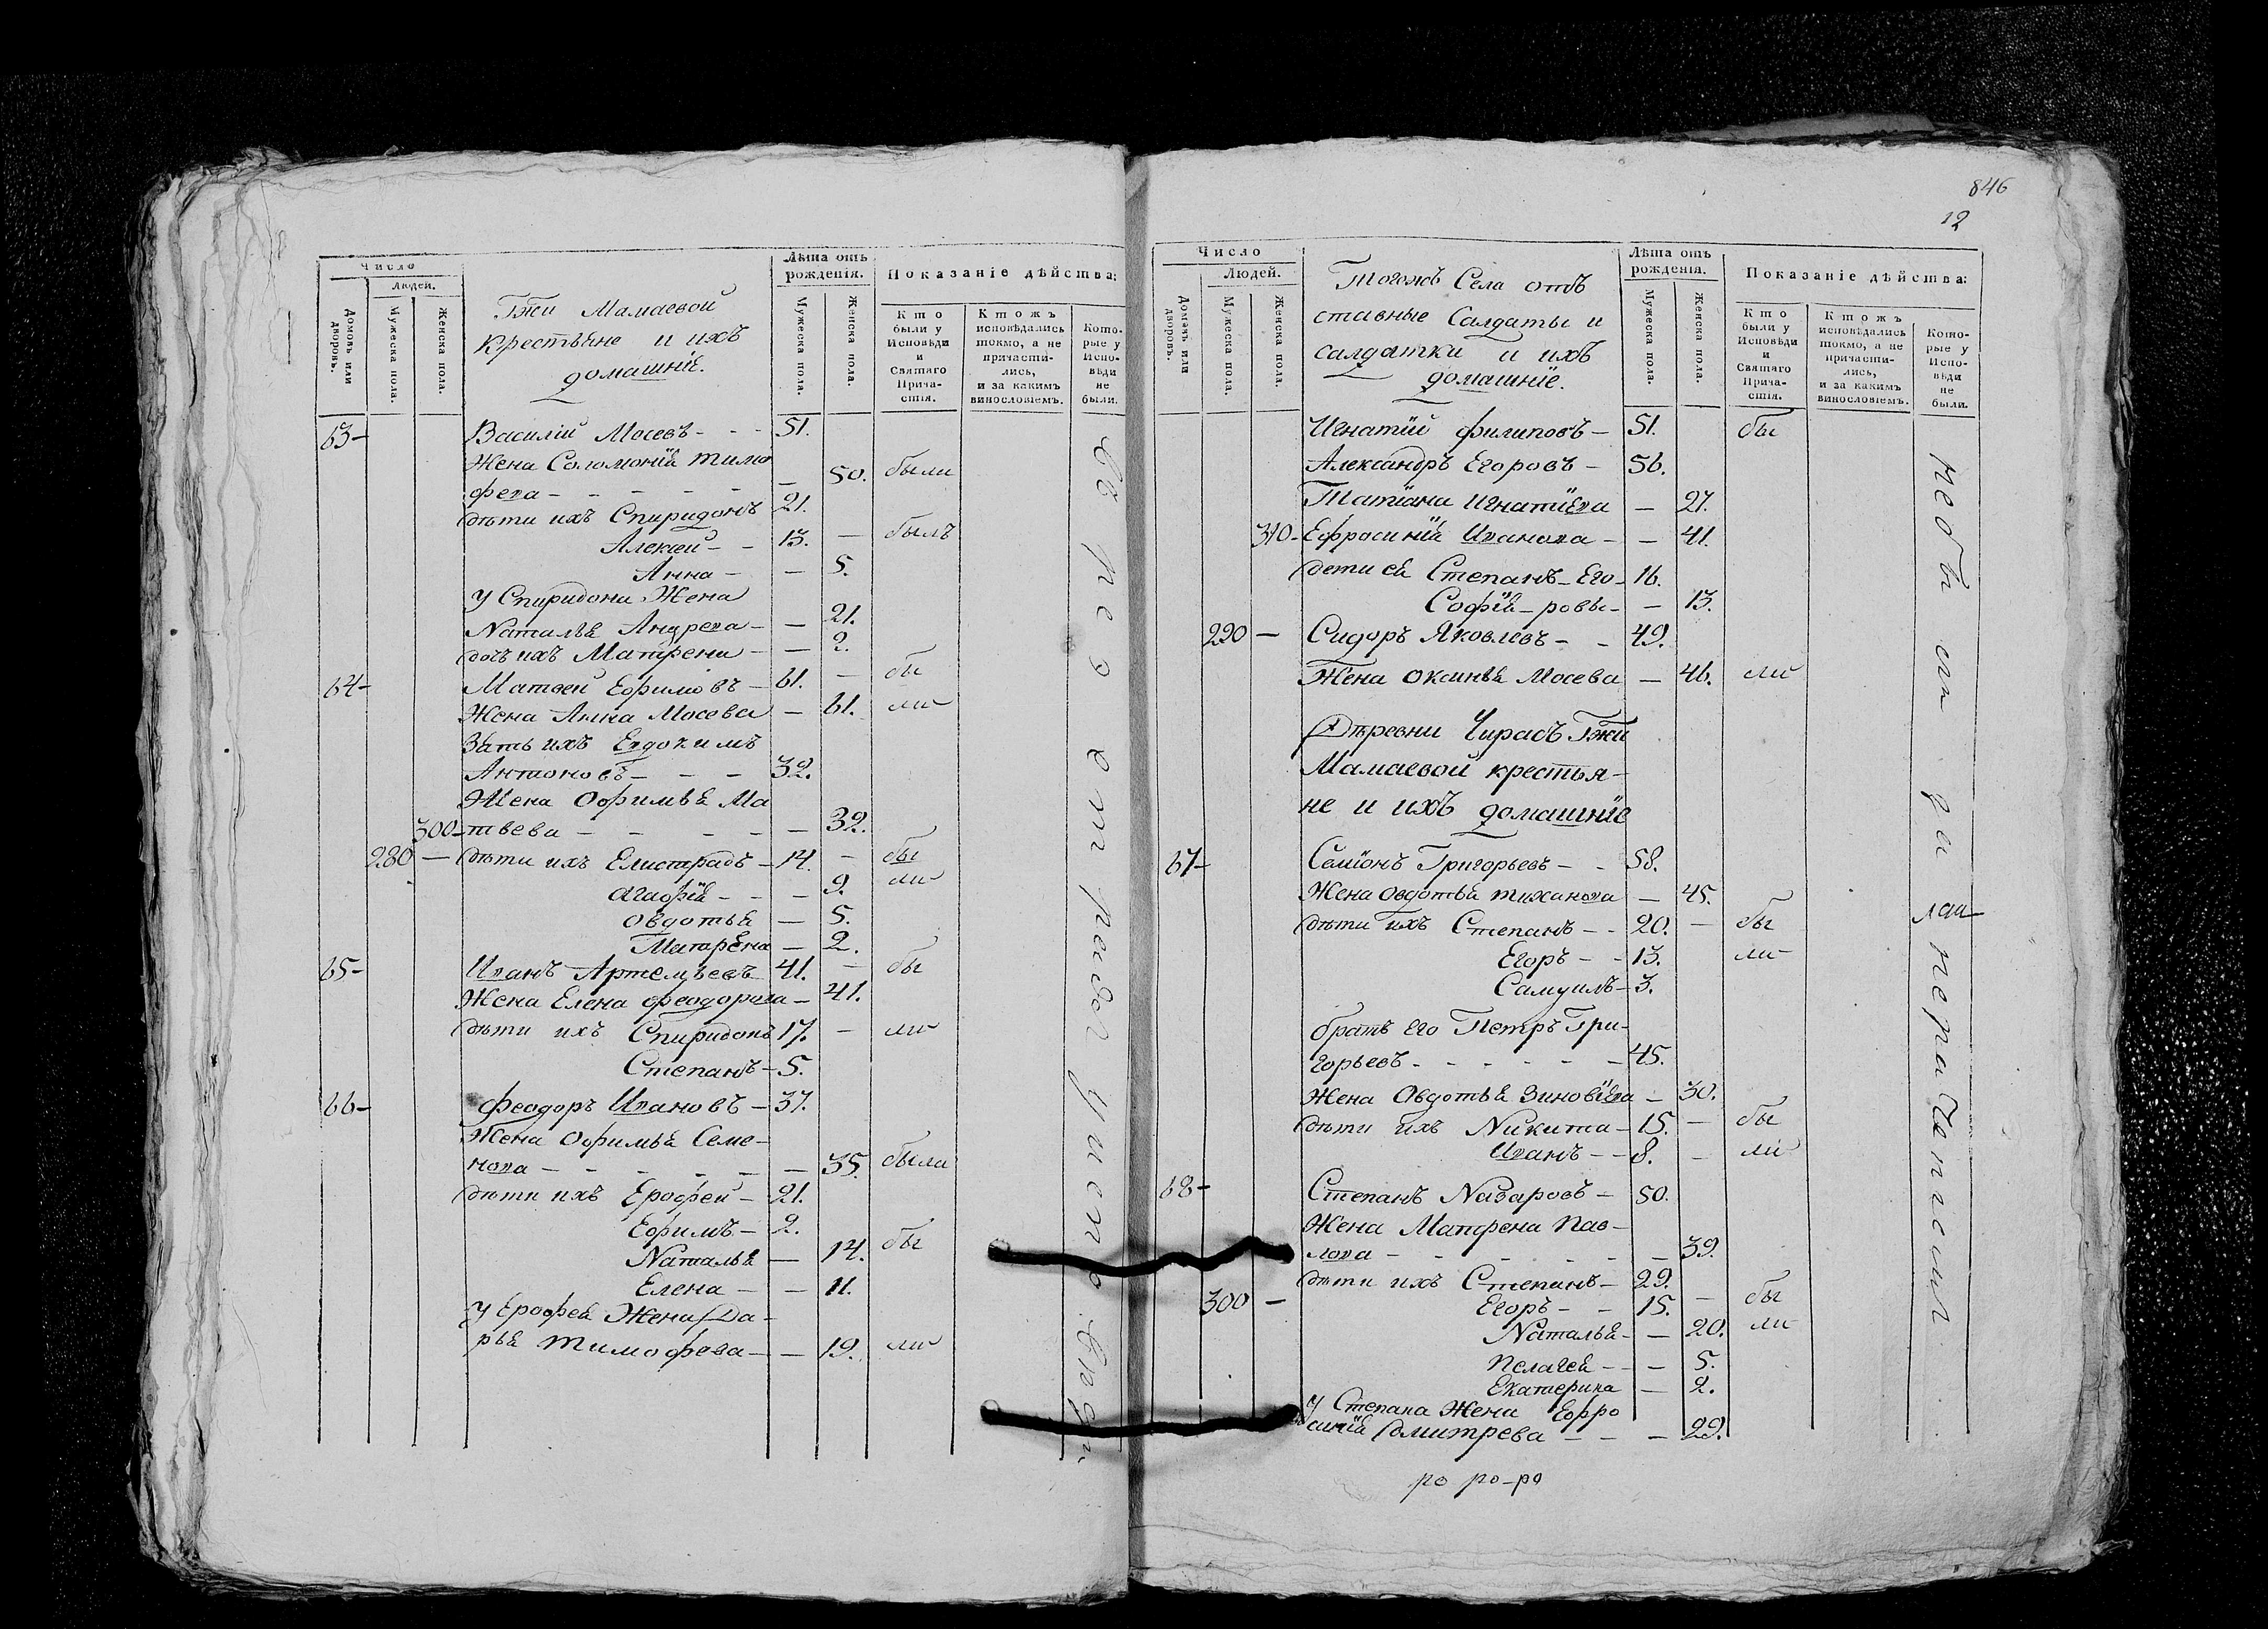 Число
Людей.
Домовъ или дворовъ.
Мужеска пола.
Женска пола.
Гжи Мамаевой
крестьяне и ихъ
домашніе.
Лѣта отъ
рожденія.
Мужеска пола.
Женска пола.
Показаніе дѣйства:
Кто
были у
Исповѣди
и
Святаго
Прича-
стія.
Ктожъ
исповѣдались
токмо, а не
причасти-
лись,
и за какимъ
винословіемъ.
Кото-
рые у
Испо-
вѣди
не
были.
63- Василій Мосевъ - - - 51.
Жена Соломонія Тимо
фева - - - - - - 50. были
дѣти ихъ Спиридонъ 21.
Алексей - - 13. - былъ
Анна - - 5.
У Спиридона Жена
Наталья Андрева - - 21.
дочь ихъ Матрена - - 2.
64- Матвей Ефимовъ - 61. - бы
Жена Анна Мосева - 61. ли
Зять ихъ Евдокимъ
Антоновъ - - - 32.
Жена Офимья Ма
300- твева - - - - - 32.
280 - дѣти ихъ Елистратъ - 14. - бы
Агафія - - - 9. ли
Овдотья - 5.
Матрена - 2.
65- Иванъ Артемьевъ 41. - бы
Жена Елена Феодорова - 41.
дѣти ихъ Спиридонъ 17. - ли
Степанъ - 5.
66- Феодоръ Ивановъ - 37.
Жена Офимья Семе-
нова - - - - - - 35. была
дѣти ихъ Ерофей - 21.
Ефимъ - 2.
Наталья - 14. бы
Елена - - 11.
У Ерофея Жена Да-
рья Тимофева - - 19. ли
846
12
Число
Людей.
Домовъ или дворовъ.
Мужеска пола.
Женска пола.
Тогожъ Села отъ
ставные Салдаты и
салдатки и ихъ
домашніе.
Лѣта отъ
рожденія.
Мужеска пола.
Женска пола.
Показаніе дѣйства:
Кто
были у
Исповѣди
и
Святаго
Прича-
стія.
Ктожъ
исповѣдались
токмо, а не
причасти-
лись,
и за какимъ
винословіемъ.
Кото-
рые у
Испо-
вѣди
не
были.
Игнатій Филиповъ - 51. бы
Александръ Егоровъ - 56.
Татіана Игнатіева - 27.
310- Ефросинія Иванова - - 41.
дети ея Степанъ - Его- 16.
Софія - ровы - - 13.
290 - Сидоръ Яковлевъ - - 49.
Жена Оксинья Мосева - 46. ли
Деревни Чирабъ Гжи
Мамаевой крестья-
не и ихъ домашніе
67- Семіонъ Григорьевъ - - 58.
Жена Овдотья Тиханова - 45.
дѣти ихъ Степанъ - - 20. - бы
Егоръ - - 13. ли
Самуилъ - 3.
братъ Его Петръ Гри-
горьевъ - - - - - - 45.
Жена Овдотья Зиновіева - 30.
дѣти ихъ Никита - 15. - бы
Иванъ - - 8. - ли
68- Степанъ Назаровъ - 50.
Жена Матрена Пав-
лова - - - - - - 39.
дѣти ихъ Степанъ - 29.
300 - Егоръ - - 15. - бы
Наталья - - 20. ли
Пелагея - - - 5.
Екатерина - 2.
У Степана Жена Ефро
синія Дмитрева - - - 29.